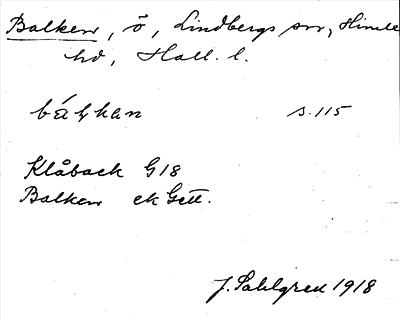 Balken, ö, Lindbergs sn, Himle
hd, Hall. l.
s. 115
Klåback G18
Balken ek Gett.
J. Sahlgren 1918